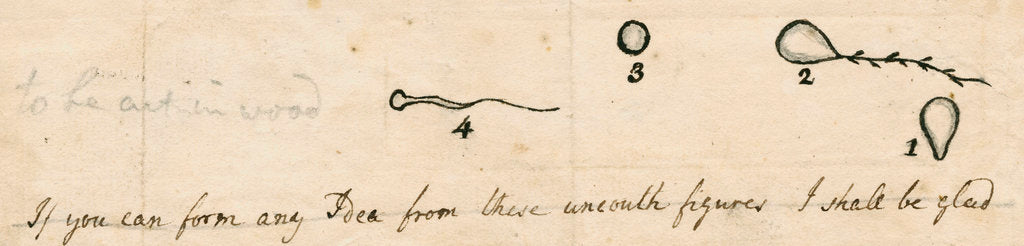 3
2
to be cut in wood
4
1
If you can form any Idea from these uncouth figures I shall be glad